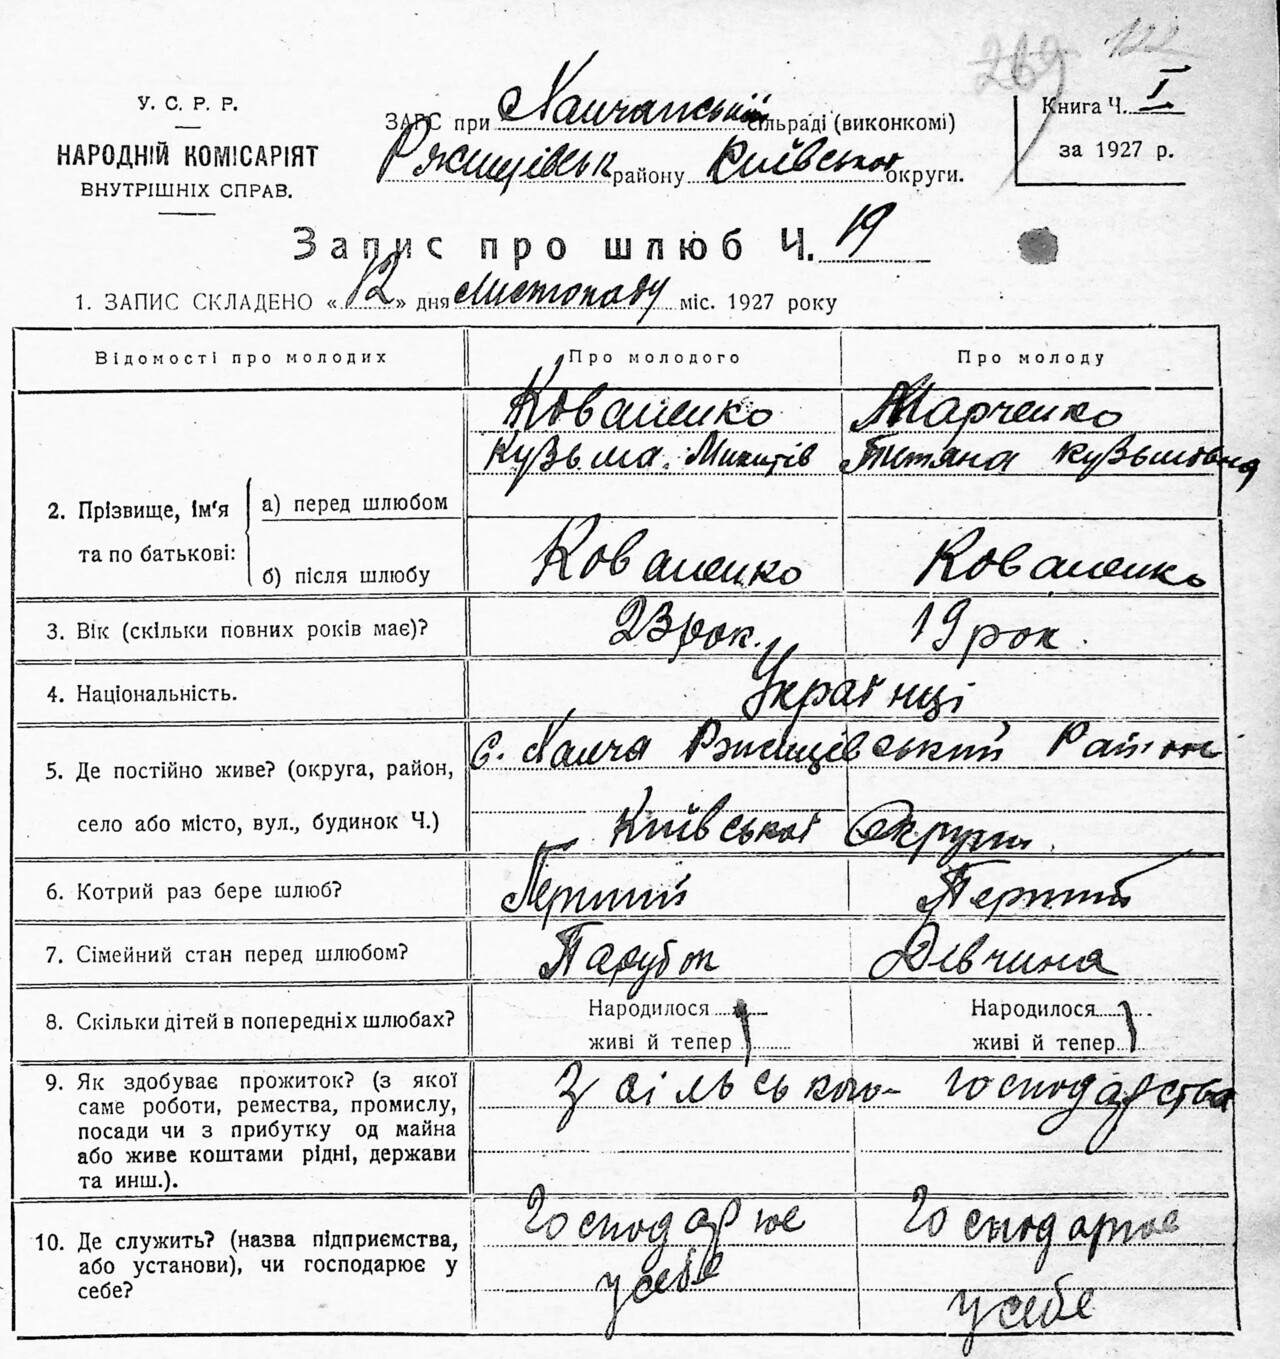 269 122
У. С. Р. Р.
НАРОДНІЙ КОМІСАРІЯТ
ВНУТРІШНІХ СПРАВ.
ЗАГС при Халчанській сільраді (виконкомі)
Ржищівськ району Київської округи.
Книга Ч. I
за 1927 р.
Запис про шлюб Ч. 19
1. ЗАПИС СКЛАДЕНО «12» дня Листопаду міс. 1927 року
Відомості про молодих Про молодого Про молоду
2. Прізвище, ім'я та по батькові:
а) перед шлюбом
Коваленко Марченко
Кузьма Микитів Тетяна Кузьмовна
б) після шлюбу Коваленко Коваленко
3. Вік (скільки повних років має)? 23 рок. 19 рок.
4. Національність. Українці
5. Де постійно живе? (округа, район, с. Халча Ржищівський Район
село або місто, вул., будинок Ч.) Київської Округи
6. Котрий раз бере шлюб? Перший Перший
7. Сімейний стан перед шлюбом? Парубок Дівчина
8. Скільки дітей в попередніх шлюбах? Народилося Народилося
живі й тепер живі й тепер
9. Як здобуває прожиток? (з якої З сільського господарства
саме роботи, ремества, промислу,
посади чи з прибутку од майна
або живе коштами рідні, держави
та инш.).
10. Де служить? (назва підприємства, Господарює Господарює
або установи), чи господарює у у себе у себе
себе?